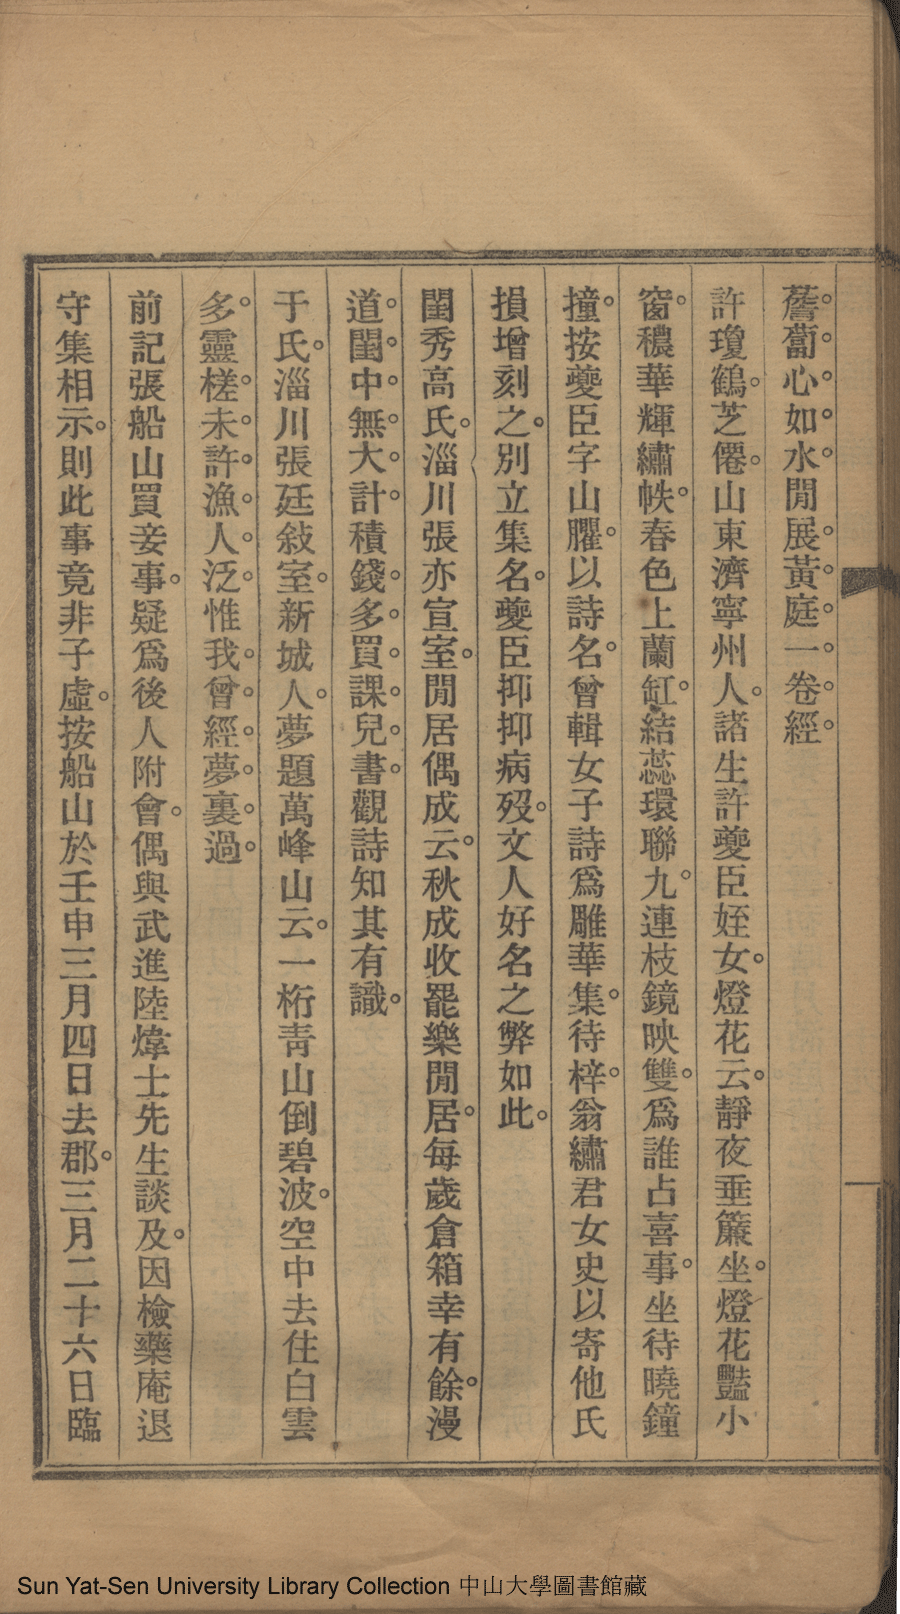 薝蔔心如水閒展黃庭一卷經。
許瓊鶴芝僊。山東濟寧州人。諸生許夔臣姪女。燈花云。靜夜垂簾坐。燈花豔小
窗。穠華輝繡帙。春色上蘭缸。結蕊環聯九。連枝鏡映雙。爲誰占喜事。坐待曉鐘
撞。按夔臣字山臞。以詩名。曾輯女子詩爲雕華集。待梓。翁繡君女史以寄他氏
損增刻之。別立集名。夔臣抑抑病歿。文人好名之弊如此。
閨秀高氏。淄川張亦宣室。閒居偶成云。秋成收罷樂閒居。每歲倉箱幸有餘。漫
道閨中無大計。積錢多買課兒書。觀詩知其有識。
于氏。淄川張廷敍室。新城人。夢題萬峰山云。一桁青山倒碧波。空中去住白雲
多。靈槎未許漁人泛。惟我曾經夢裏過。
前記張船山買妾事。疑爲後人附會。偶與武進陸煒士先生談及。因檢藥庵退
守集相示。則此事竟非子虛。按船山於壬申三月四日去郡。三月二十六日臨
Sun Yat-Sen University Library Collection 中山大學圖書館藏